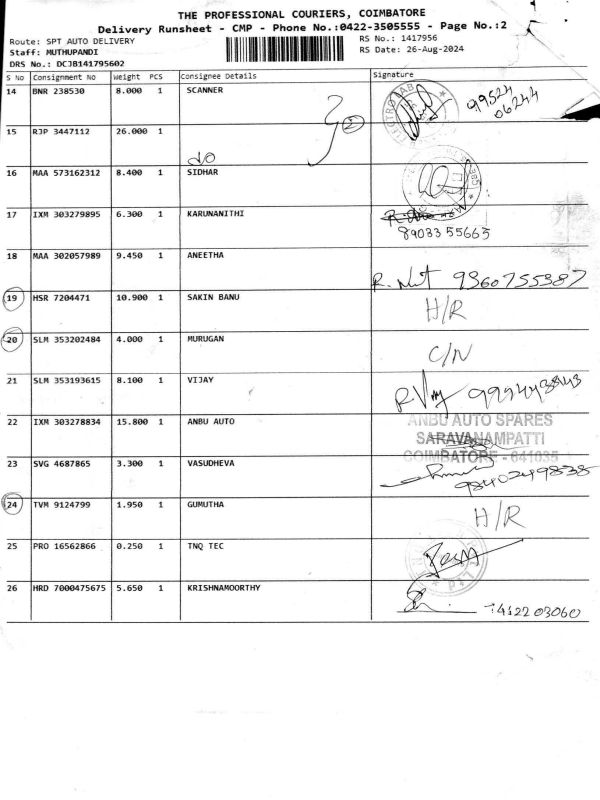 THE PROFESSIONAL COURIERS, COIMBATORE
Delivery Runsheet - CMP - Phone No.:0422-3505555 - Page No.:2
Route: SPT AUTO DELIVERY
RS No.: 1417956
Staff: MUTHUPANDI
RS Date: 26-Aug-2024
DRS No.: DCJB141795602
S No Consignment No Weight PCS Consignee Details Signature
14 BNR 238530 8.000 1 SCANNER 99524
06244
2
15 RJP 3447112 26.000 1
do
16 MAA 573162312 8.400 1 SIDHAR
17 IXM 303279895 6.300 1 KARUNANITHI
89033 55665
18 MAA 302057989 9.450 1 ANEETHA
9360755387
19 HSR 7204471 10.900 1 SAKIN BANU
H/R
20 SLM 353202484 4.000 1 MURUGAN
C/N
21 SLM 353193615 8.100 1 VIJAY
22 IXM 303278834 15.800 1 ANBU AUTO
ANBU AUTO SPARES
SARAVANAMPATTI
COIMBATORE - 641035
23 SVG 4687865 3.300 1 VASUDHEVA
9840249838
24 TVM 9124799 1.950 1 GUMUTHA
H/R
25 PRO 16562866 0.250 1 TNQ TEC
26 HRD 7000475675 5.650 1 KRISHNAMOORTHY
7412203060